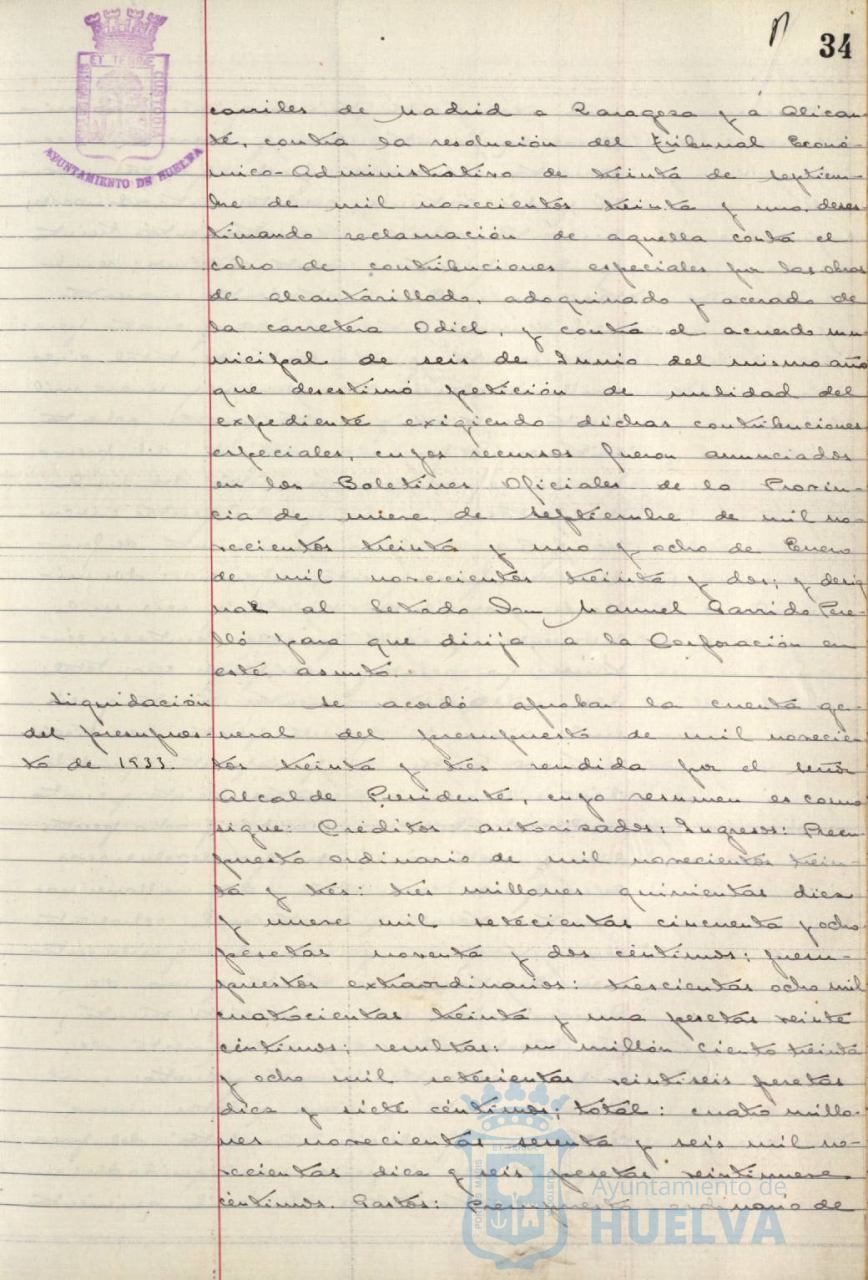 34
ET TERRE
CUSTODIA
AYUNTAMIENTO DE HUELVA
carriles de Madrid a Zaragoza y á Alican-
te, contra la resolución del Tribunal Econó-
mico-Administrativo de treinta de septiem-
bre de mil novecientos treinta y uno, deses-
timando reclamación de aquella contra el
cobro de contribuciones especiales por las obras
de alcantarillado, adoquinado y acerado de
la carretera Odiel, y contra el acuerdo mu-
nicipal de seis de Junio del mismo año
que desestimó petición de nulidad del
expediente exigiendo dichas contribuciones
especiales, cuyos recursos fueron anunciados
en los Boletines Oficiales de la Provin-
cia de nueve de septiembre de mil no-
vecientos treinta y uno y ocho de Enero
de mil novecientos treinta y dos; y desig
nar al letrado Don Manuel Garrido Pere-
lló para que dirija a la Corporación en
este asunto.
Liquidación
del presupues-
to de 1933.
Se acordó aprobar la cuenta ge-
neral del presupuesto de mil novecien
tos treinta y tres rendida por el señor
Alcalde Presidente, cuyo resumen es como
sigue: Créditos autorizados: Ingresos: Presu-
puesto ordinario de mil novecientos trein-
ta y tres: tres millones quinientas diez
y nueve mil setecientas cincuenta y ocho
pesetas noventa y dos céntimos; presu-
puestos extraordinarios: trescientas ocho mil
cuatrocientas treinta y una pesetas veinte
céntimos; resultas: un millón ciento treinta
y ocho mil setecientas veintiseis pesetas
diez y siete céntimos; total: cuatro millo-
nes novecientas sesenta y seis mil no-
vecientas diez y seis pesetas veintinueve
céntimos. Gastos: Presupuesto ordinario de
Ayuntamiento de
HUELVA